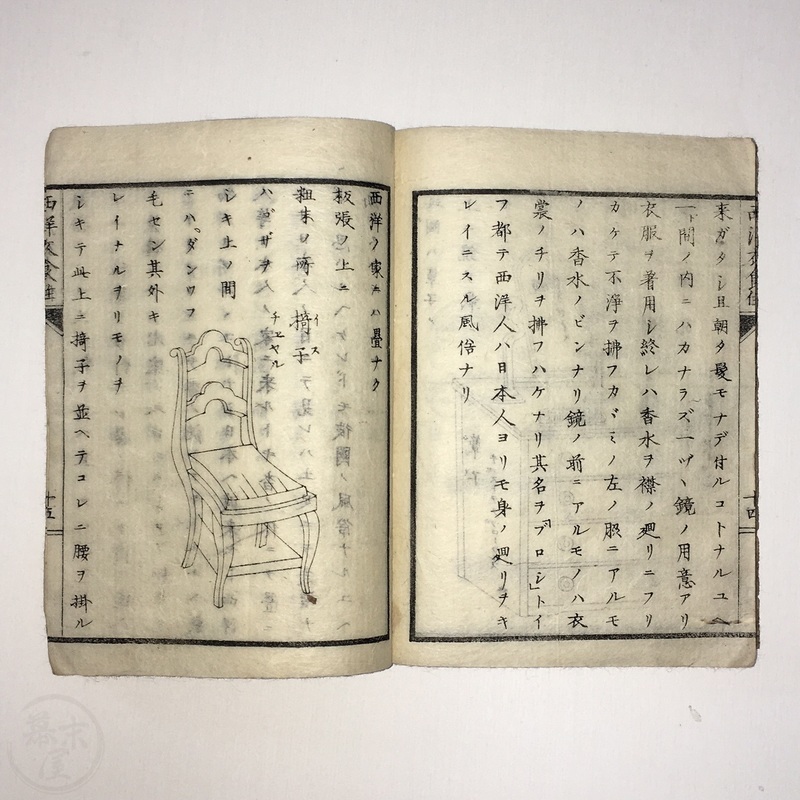 西洋衣食住
十四
来ガタシ且朝夕髪モナデ付ルコトナルユヘ
一ト間ノ内ニハカナラズ一ツヾ鏡ノ用意アリ
衣服ヲ著用シ終レハ香水ヲ襟ノ廻リニフリ
カケテ不浄ヲ拂フカヾミノ左ノ脇ニアルモ
ノハ香水ノビンナリ鏡ノ前ニアルモノハ衣
裳ノチリヲ拂フハケナリ其名ヲ「ブロシ」トイ
フ都テ西洋人ハ日本人ヨリモ身ノ廻リヲキ
レイニスル風俗ナリ
西洋ノ家ニハ疊ナク
板張ノ上ニ
粗末ノ所
ハゴザヲ
シキ上ノ間
ニハ
毛セン其外キ
レイナルヲリモノヲ
シキテ此上ニ掎子ヲ並ヘテコレニ腰ヲ掛ル
イス
掎子
チエヤル
西洋衣食住
十五
幕末屋